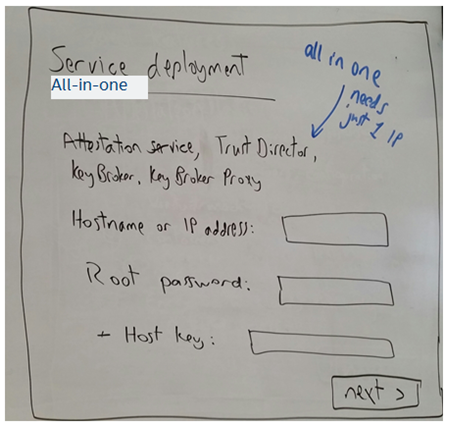 Service deployment
All-in-one
all in one
needs
just 1 IP
Attestation service, Trust Director,
Key Broker, Key Broker Proxy
Hostname or IP address:
Root password:
+ Host key:
next >